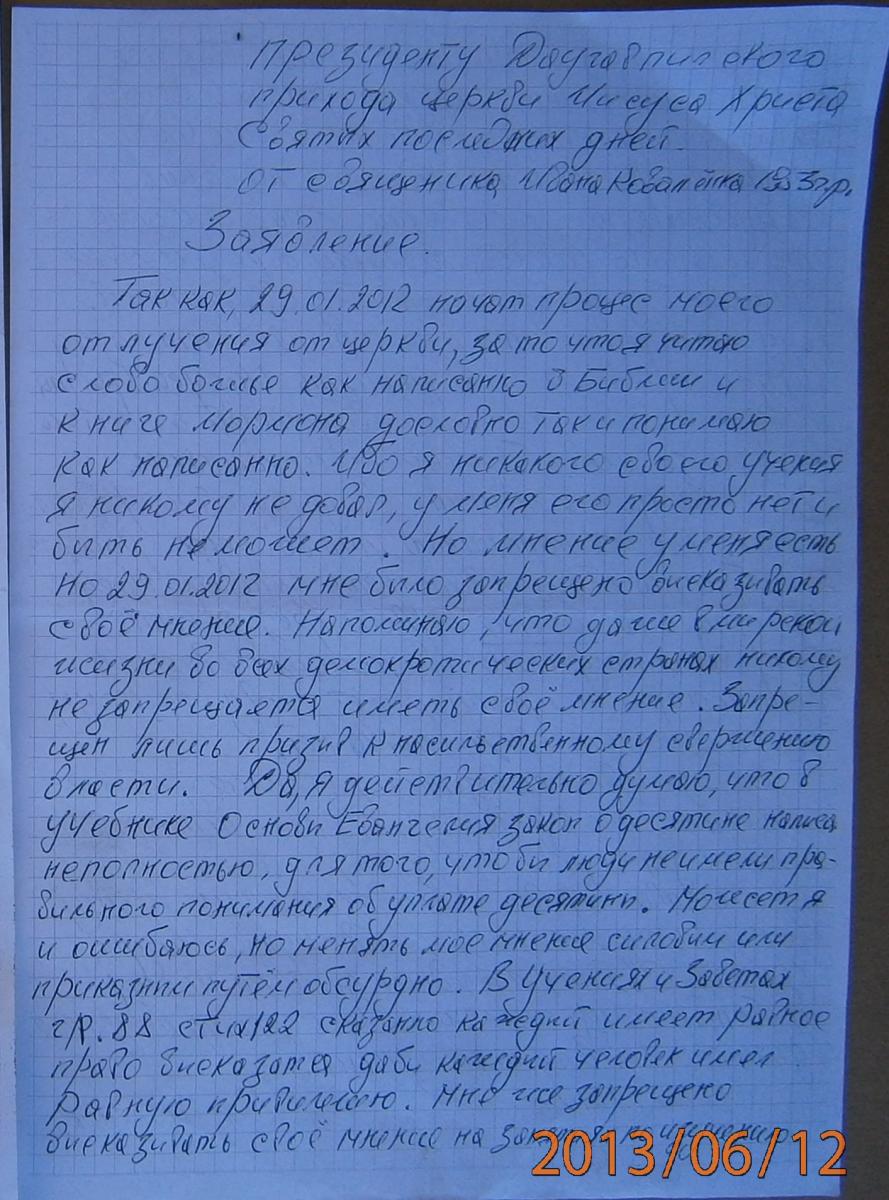 Президенту Даугавпилского
прихода церкви Иисуса Христа
Святих последних дней.
от священика Ивана Коваленка 1953г.р.
Заявление.
Так как, 29.01.2012 начат процес моего
отлучения от церкви, за то что я читаю
слово божье как написанно в Библии и
книге Мормона дословно так и понимаю
как написанно. Ибо я никакого своего учения
я никому не довал, у меня его просто нет и
быть не может. Но мнение у меня есть
но 29.01.2012 мне било запрещено висказивать
своё мнение. Напоминаю, что даже в мирской
жизни во всех демократических странах никому
не запрещается иметь своё мнение. Запре-
щен лишь призив к насильственному свержению
власти. Да, я действительно думаю, что в
учебнике Основи Евангелия закон о десятине написа
неполностью, для того, что би люди не имели пра-
вильного понимания об уплате десятини. Может я
и ошибаюсь, но менять мое мнение силовим или
приказним путём обсурдно. В Учениях и Заветах
гр. 88 стих 122 сказанно каждий имеет равное
право висказатся даби каждий человек имел
равную привилегию. Мне же запрещено
висказивать своё мнение на занятях по изучению
2013/06/12